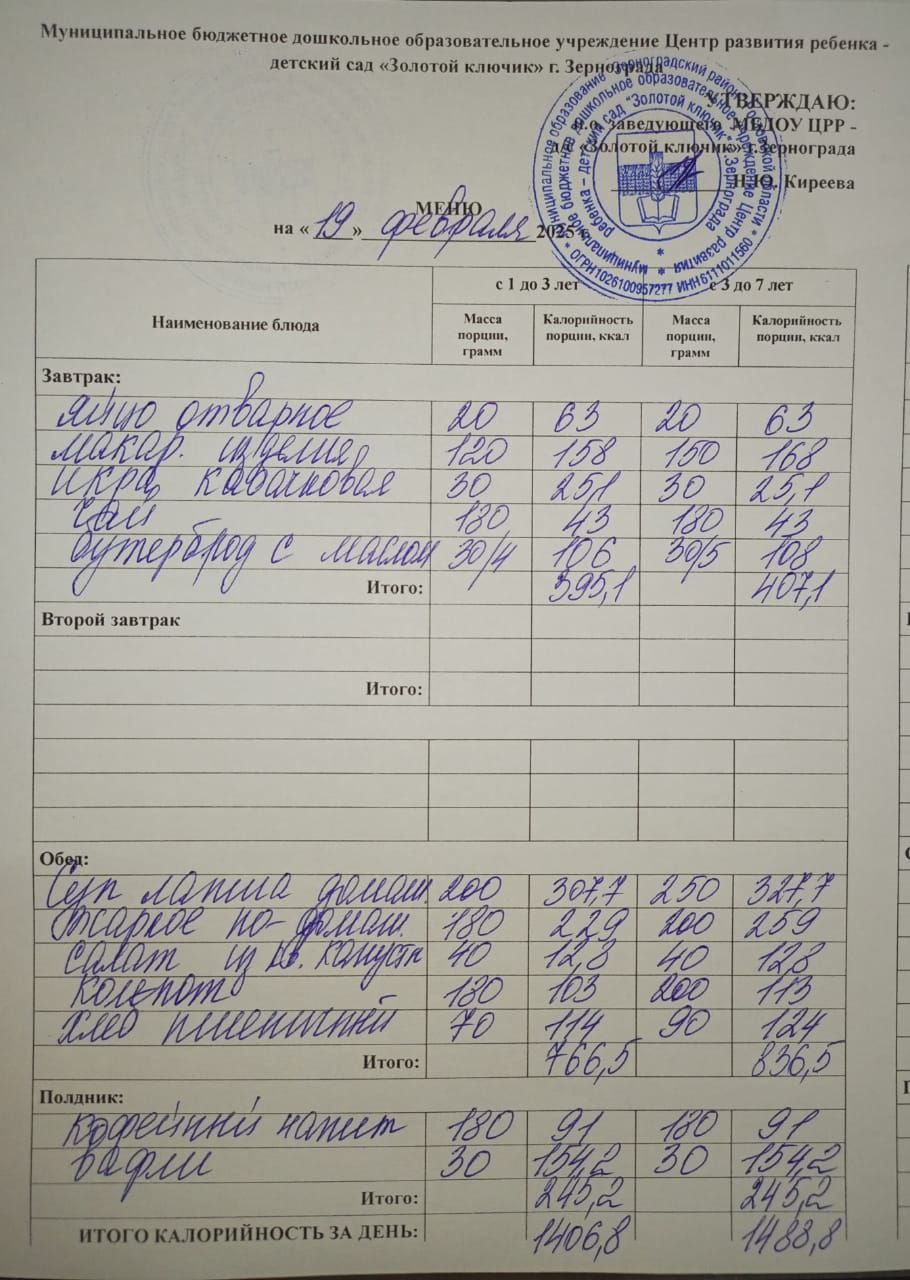 Муниципальное бюджетное дошкольное образовательное учреждение Центр развития ребенка -
детский сад «Золотой ключик» г. Зернограда
УТВЕРЖДАЮ:
и.о. заведующего МБДОУ ЦРР -
д/с «Золотой ключик» г.Зернограда
Н.Ю. Киреева
МЕНЮ
на « 19 » февраля 2025 г.
Муниципальное образование "Зерноградский район" Ростовской области * ОГРН1026100957277 ИНН6111011560 *
муниципальное бюджетное дошкольное образовательное учреждение Центр развития
ребенка – детский сад "Золотой ключик" г. Зернограда *
Наименование блюда с 1 до 3 лет с 3 до 7 лет
Масса порции, грамм Калорийность порции, ккал Масса порции, грамм Калорийность порции, ккал
Завтрак:
яйцо отварное 20 63 20 63
макар. изделия 120 158 150 168
икра кабачковая 30 25,1 30 25,1
чай 180 43 180 43
бутерброд с маслом 30/4 106 30/5 108
Итого: 395,1 407,1
Второй завтрак
Итого:
Обед:
Суп лапша домаш. 200 307,7 250 327,7
Жаркое по-домаш. 180 229 200 259
салат из кв. капусты 40 12,8 40 12,8
компот 180 103 200 113
хлеб пшеничный 70 114 90 124
Итого: 766,5 836,5
Полдник:
кофейный напит 180 91 180 91
вафли 30 154,2 30 154,2
Итого: 245,2 245,2
ИТОГО КАЛОРИЙНОСТЬ ЗА ДЕНЬ: 1406,8 1488,8